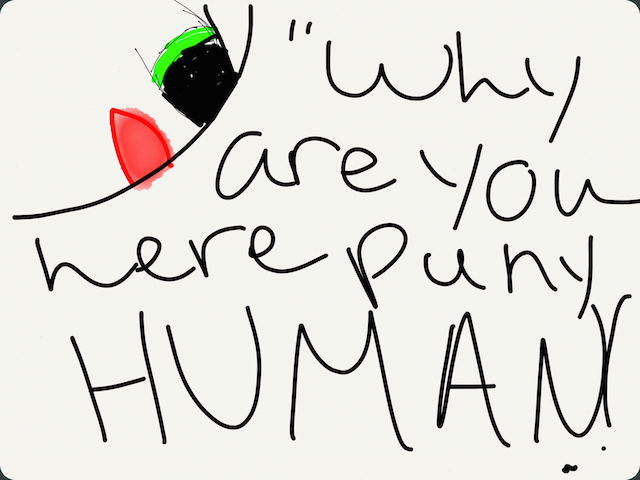 "Why
are you
here puny
HUMAN